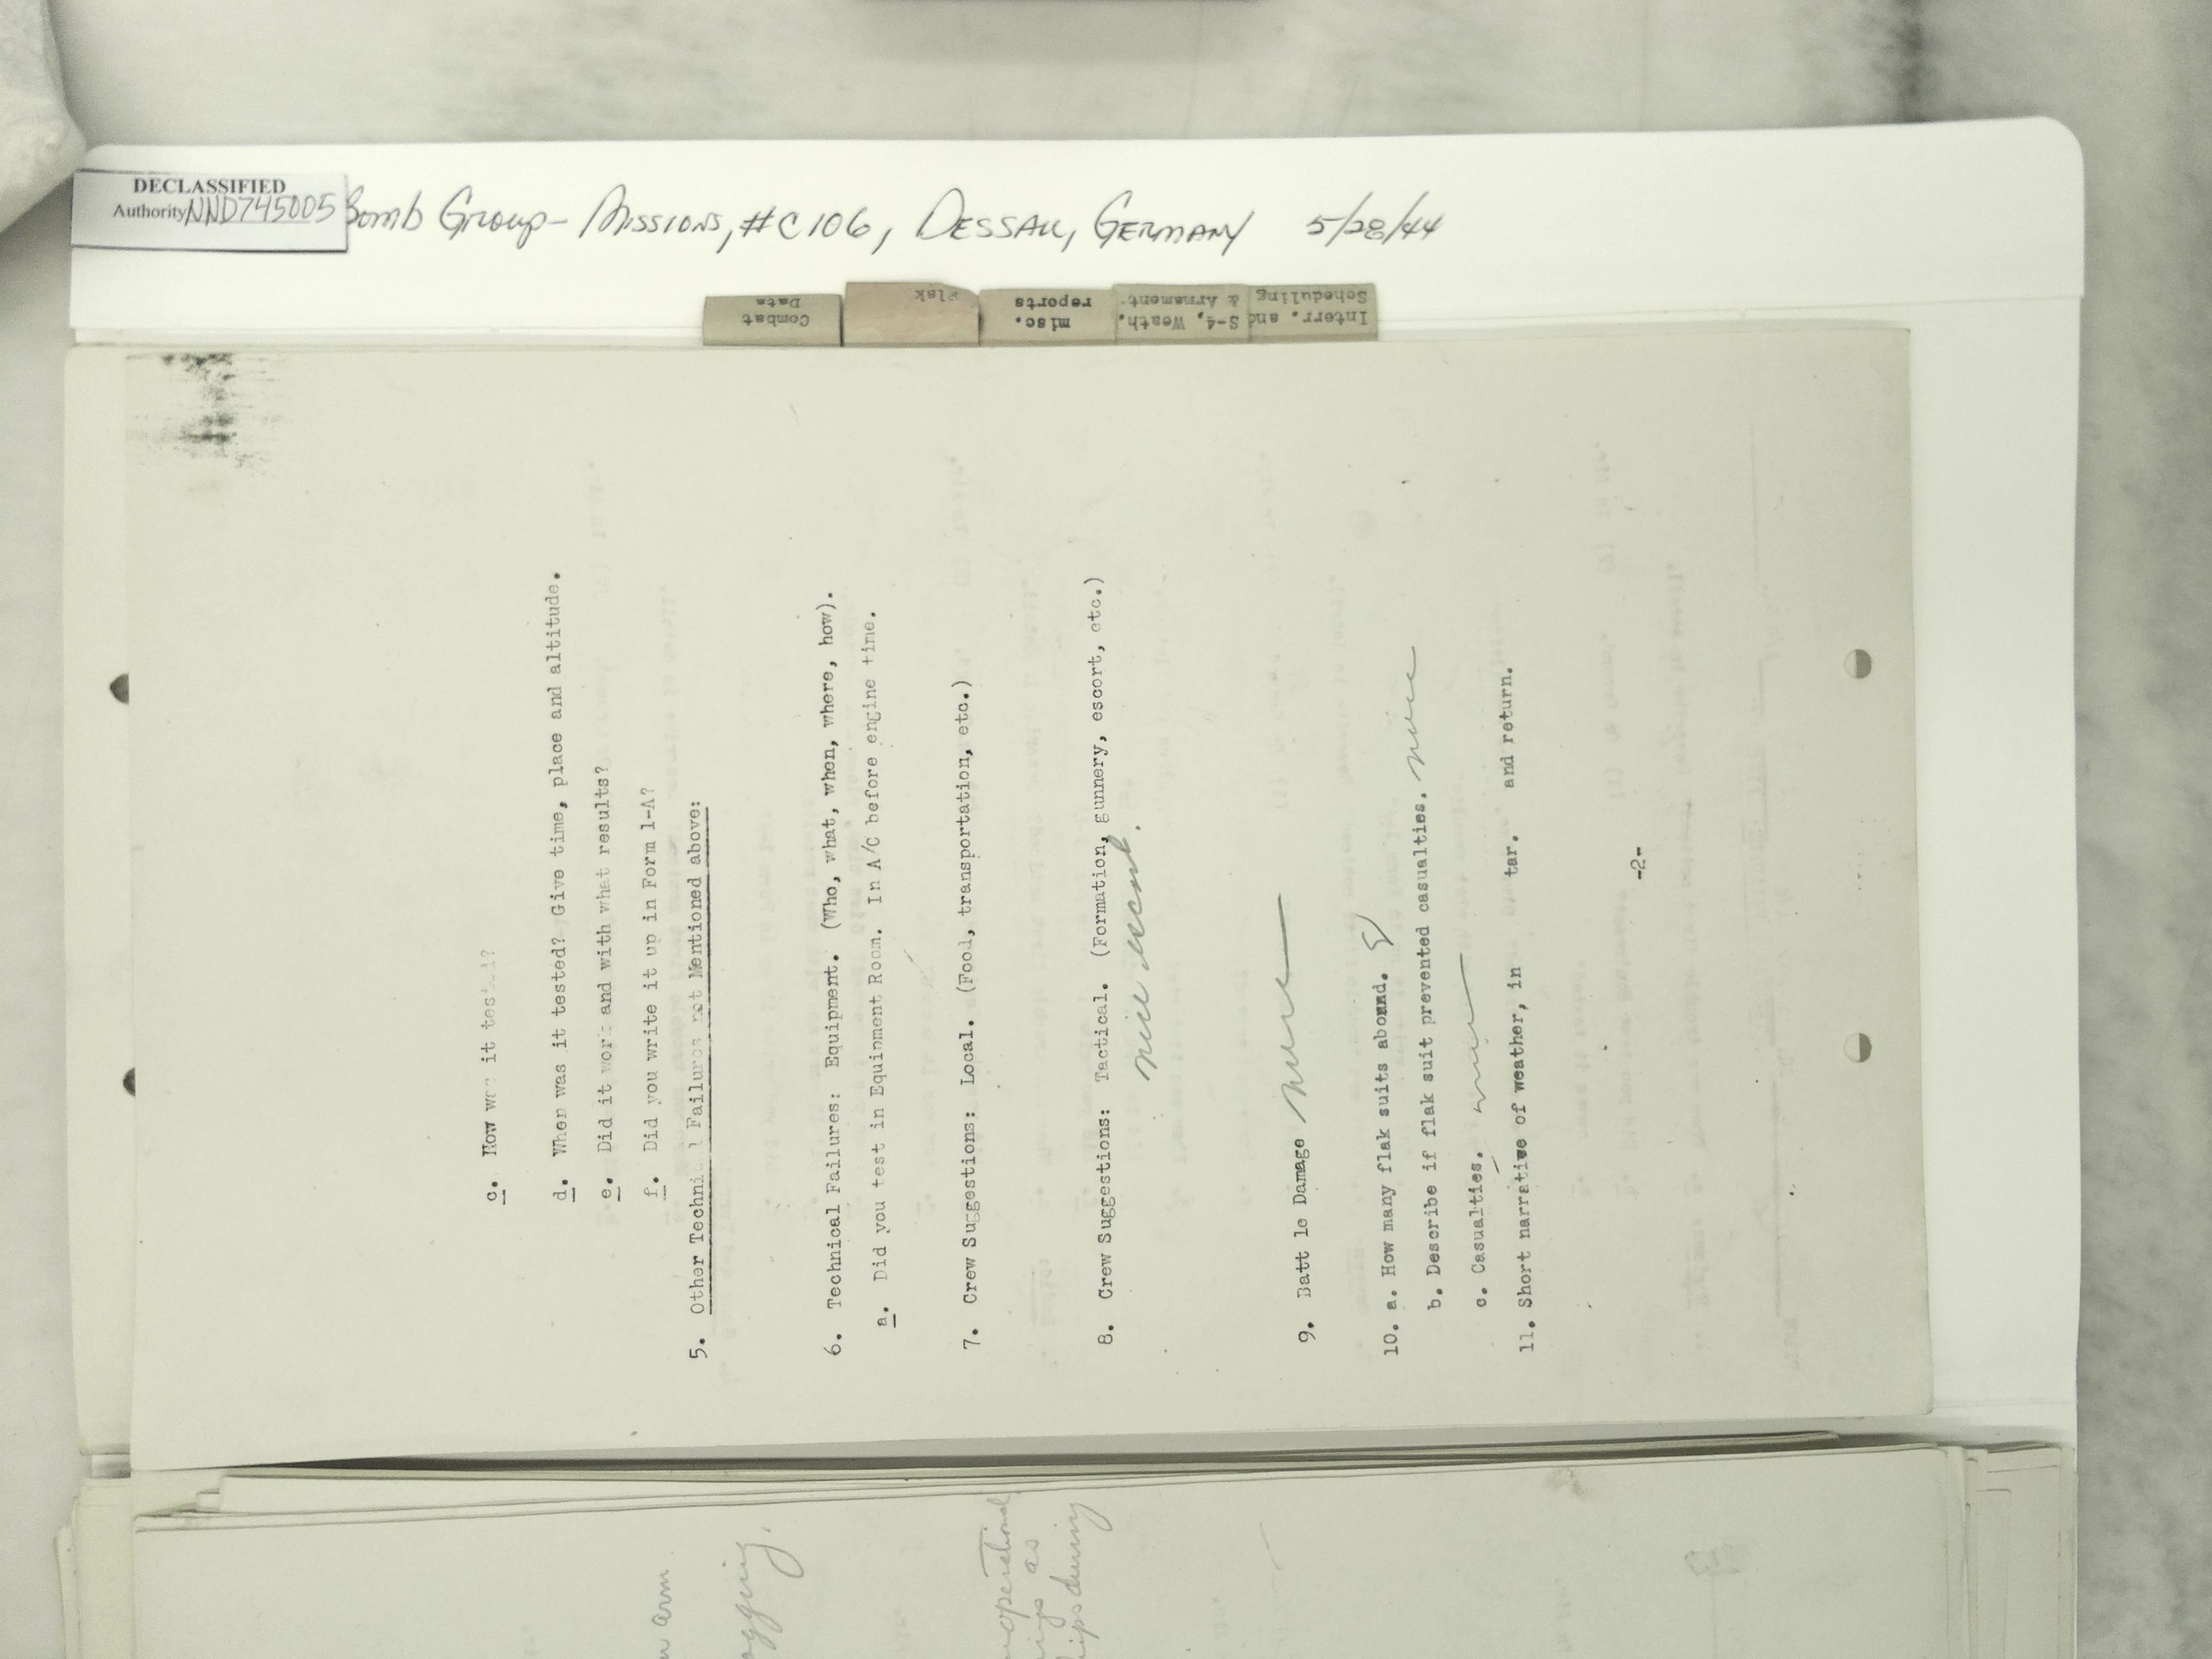 DECLASSIFIED
Authority NND745005
Bomb Group - Missions, #C106, DESSAU, GERMANY 5/28/44
Combat
Data
Flak
misc.
reports
S-4, Weath.
& Armament
Interr. and
Scheduling
c. How was it tested?
d. When was it tested? Give time, place and altitude.
e. Did it work and with what results?
f. Did you write it up in Form 1-A?
5. Other Techni l Failures not Mentioned above:
6. Technical Failures: Equipment. (Who, what, when, where, how).
a. Did you test in Equipment Room. In A/C before engine time.
7. Crew Suggestions: Local. (Food, transportation, etc.)
8. Crew Suggestions: Tactical. (Formation, gunnery, escort, etc.)
nice escort.
9. Batt le Damage None
10. a. How many flak suits abound.
b. Describe if flak suit prevented casualties. None
c. Casualties. none
11. Short narrative of weather, in tar. and return.
-2-
arm
ogging.
operational
ings as
ips during